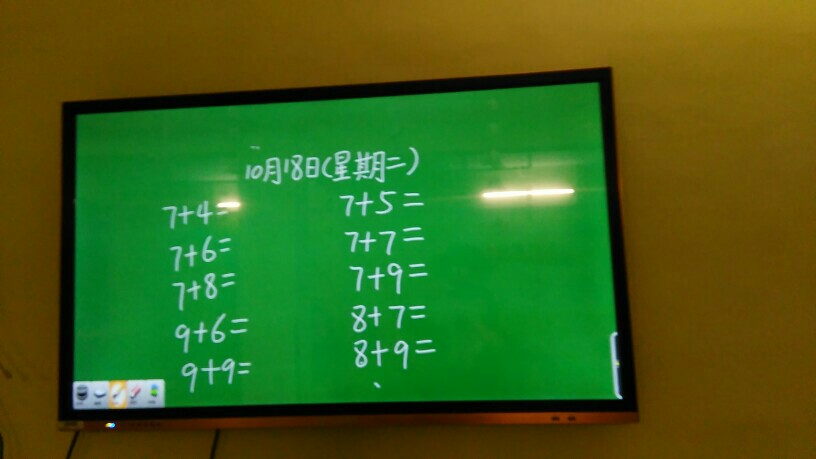 10月18日(星期二)
7+4= 7+5=
7+6= 7+7=
7+8= 7+9=
9+6= 8+7=
9+9= 8+9=